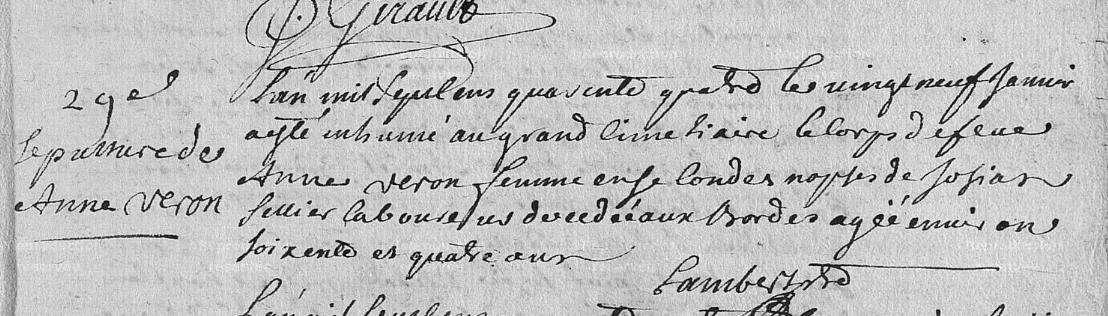 Girault
29e
sepulture de
Anne veron
L'an mil sept cens quarente quatre le vingt neuf Janvier
a eté inhumé au grand cimetiaire le corps de feue
Anne veron femme en secondes nopses de Josias
sellier laboureur decedée aux Bordes agée environ
soixente et quatre ans
Lambert
L'an mil sept cens